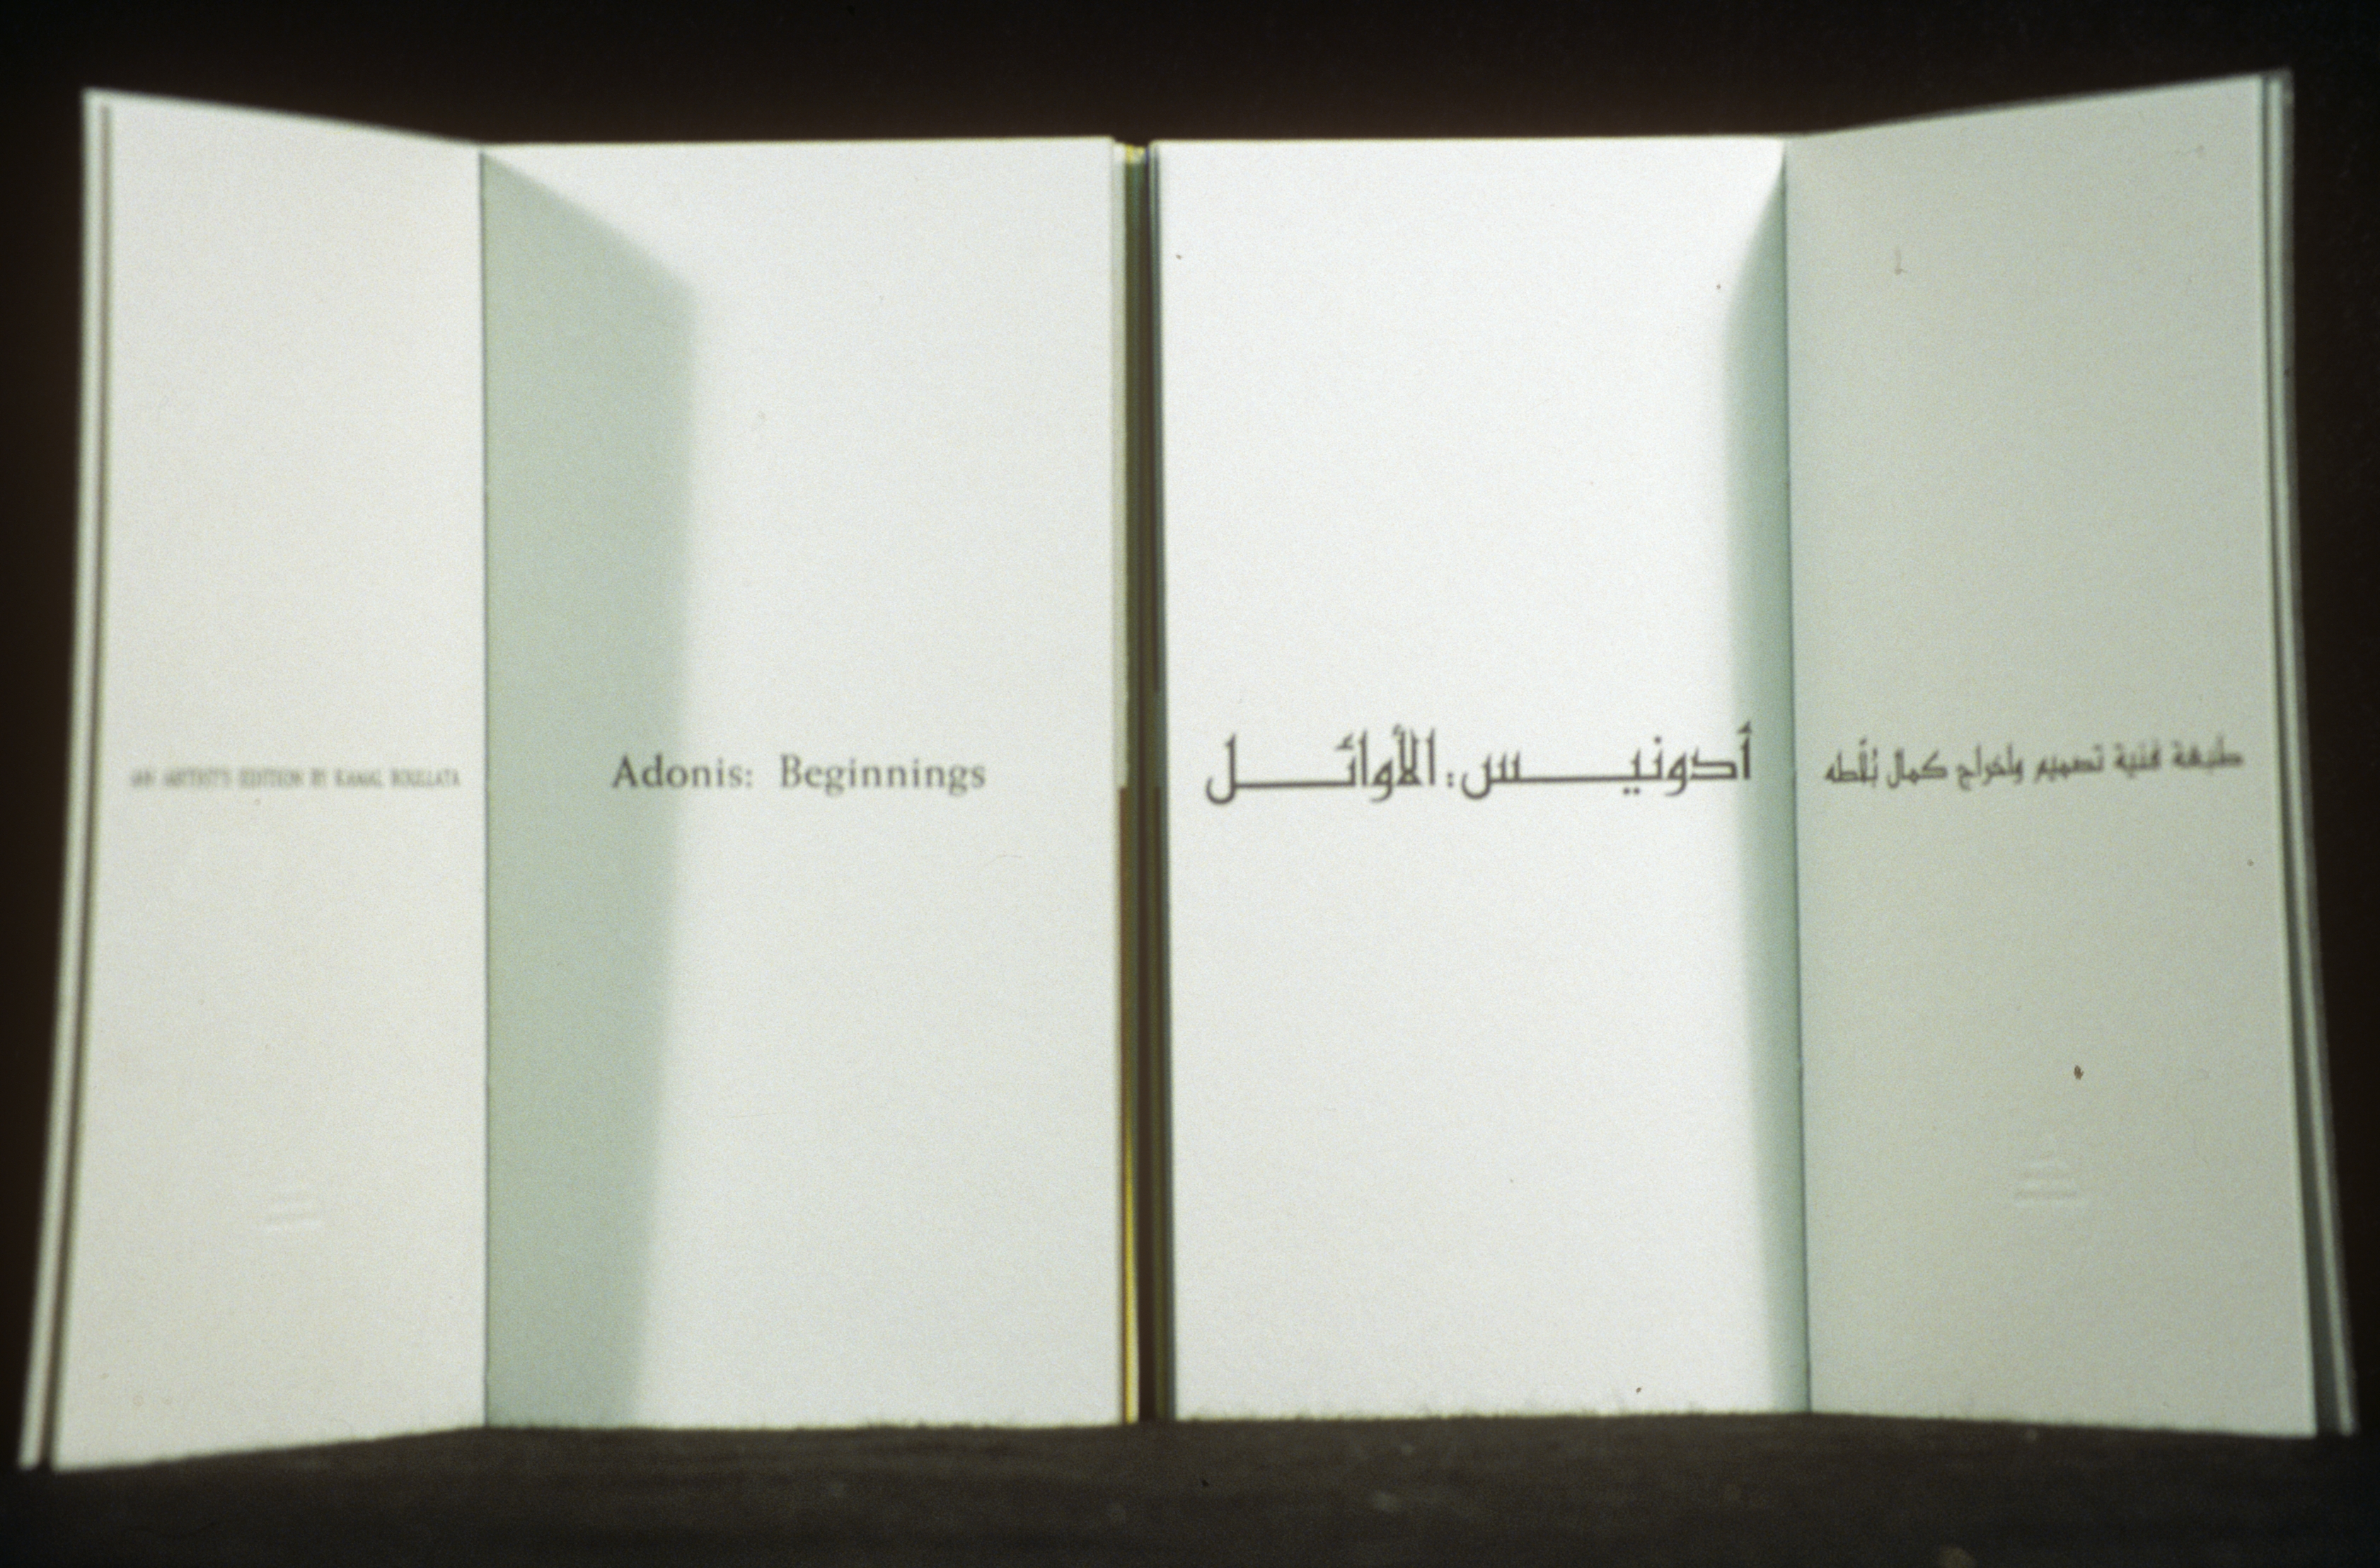 AN ARTIST'S EDITION BY KAMAL BOULLATA
Adonis: Beginnings
أدونيس: الأوائل
طبعة فنية تصميم وإخراج كمال بُلّاطه